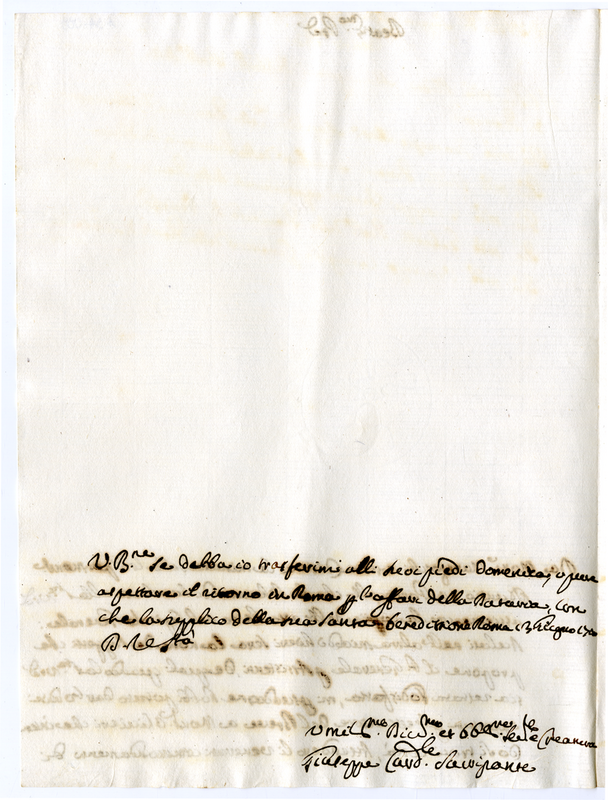 V. B.ne se debba io trasferirmi alli suoi piedi Domenica, o pure
aspettare il ritorno in Roma p l'affari della Dataria, con
che la supplico della sua santa benedizione Roma 13 Giugno
D. V. S.tà
Umil.mo Div.mo et Obb.mo Creatura
Giuseppe Card.le Sacripante